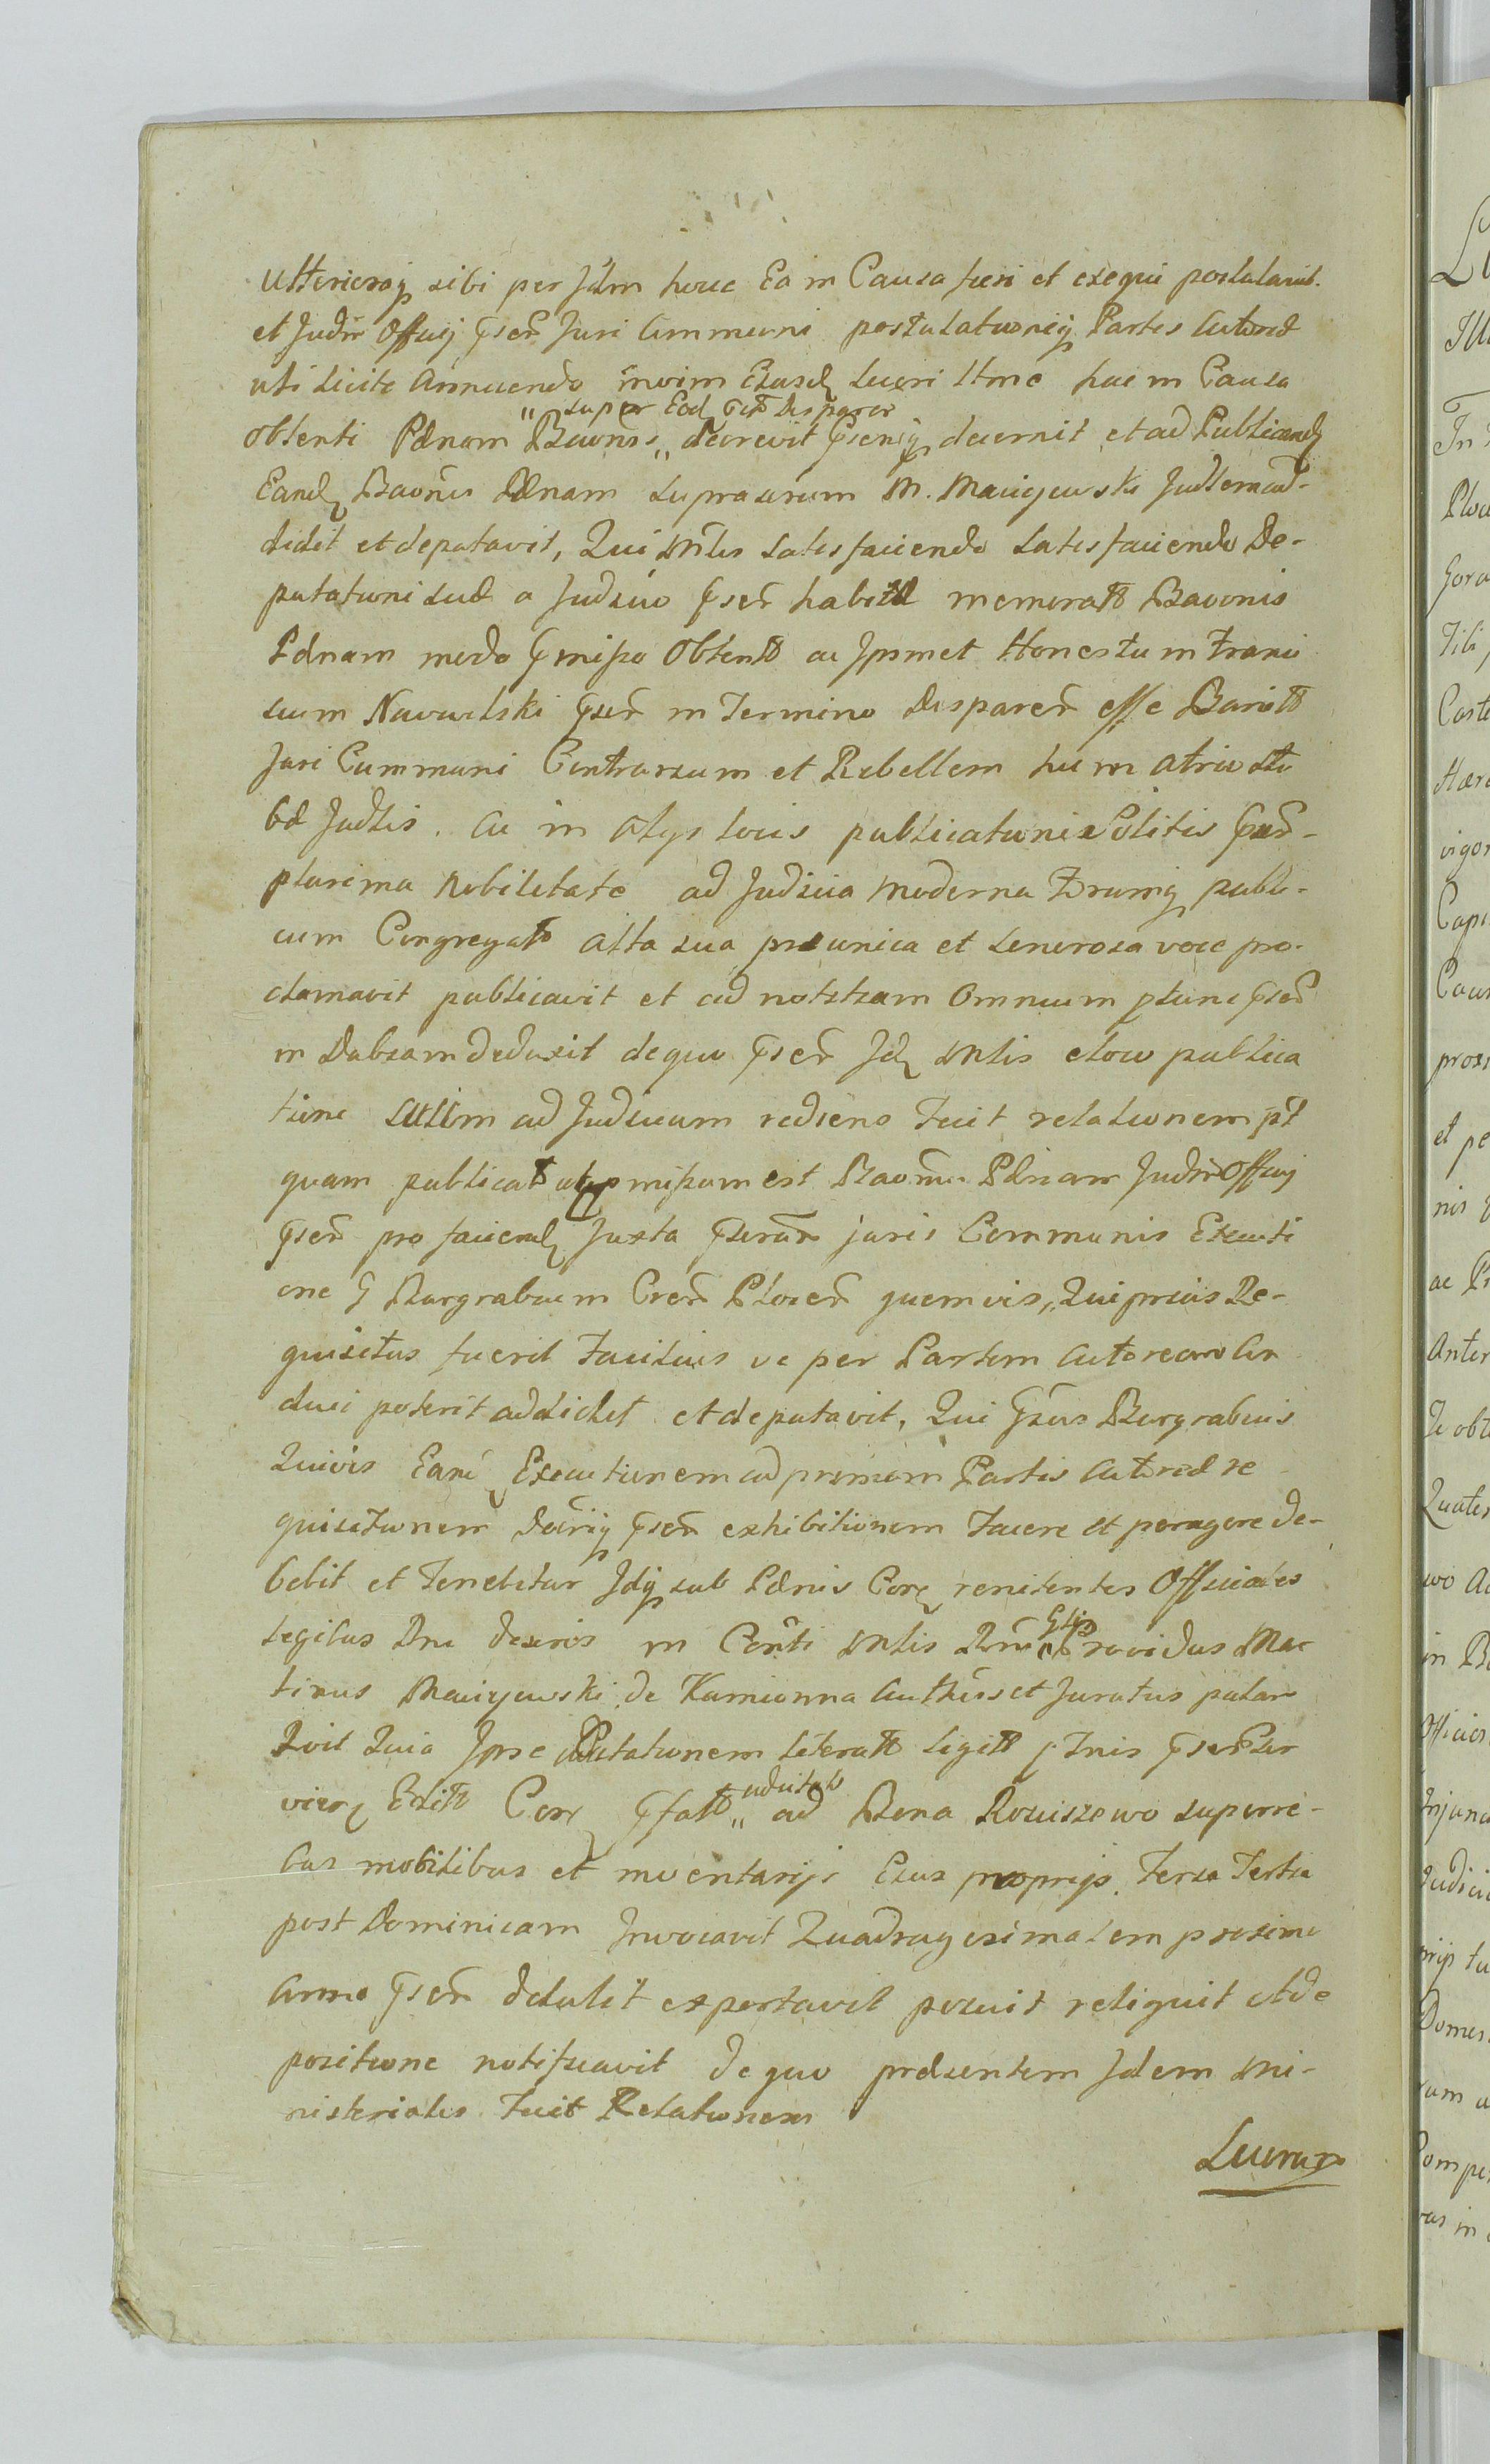 Ulterioraq sibi per Jdm hocce Ea in Causa fieri et exequi postulavit.
et Judm Officij psen Juri Communi postulationiq Partis Actoreæ
uti licite Annuendo in vim Ejusd lucri Hinc hac in Causa
super Eod pte dis paren
obtenti Pænam " Baonis " decrevit psentiq decernit et ad Publicand
Eand Baonis Pænam supra scrum M. Maciyewski Judlem ad-
didit et deputavit, Qui Mlis satisfaciendo satisfaciendo De-
putationi suæ a Judicio psen habitæ memoratæ Baonis
Pænam modo pmisso Obtentæ ac Ipsmet Honestum Franci
scum Nawulski psen in Termino Disparen esse Banitt
Juri Communi Contrarium et Rebellem hic in Atrio Sti
bd Judlis. Ac in Alys locis publicationi Solitis psen-
plurima Nobilitate ad Judicia moderna Forumq publi-
cum Congregata Alta sua præunica et senorosa voce pro-
clamavit publicavit et ad notitiam Omnium ptunc psen
in Dubiam deduxit de quo psen Id Mlis e loco publica
tione Statim ad Judicium rediens fecit relationem pt
quam publicat uti pmissum est Baonis Pænam Judm Officij
psen pro faciend Juxta pseran juris Communis Executi
one p Burgrabium Cren Plocen quemvis, Qui prius Re-
quisitus fuerit Facilius ve per Partem Actoream Con
duci poterit addidit et deputavit, Qui psens Burgrabius
Quivis Eam Executionem ad primam Partis Actoreæ re
quisitionem Decriq psen exhibitionem facere et peragere de-
bebit et tenebitur Idq sub Pænis Contra renitentes Officiales
Legibus Dni descris in Conti Mlis Rni Glis Providus Mar
tinus Maciyewski de Kamionna Authens et Juratus palam
Quit Quia Ipse Citationem literatt legitt p tnis psen Ser
vien Editt Con pfatt " aducitatt " ad Bona Rociszewo super re-
bus mobilibus et inventarijs Ejus proprijs Feria Tertia
post Dominicam Invocavit Quadragesimalem proxime
Anno psen detulit exportavit posuit reliquit et de
positione notificavit de quo præsentem Idem Mi-
nisterialis Fecit Relationem
Lucrum